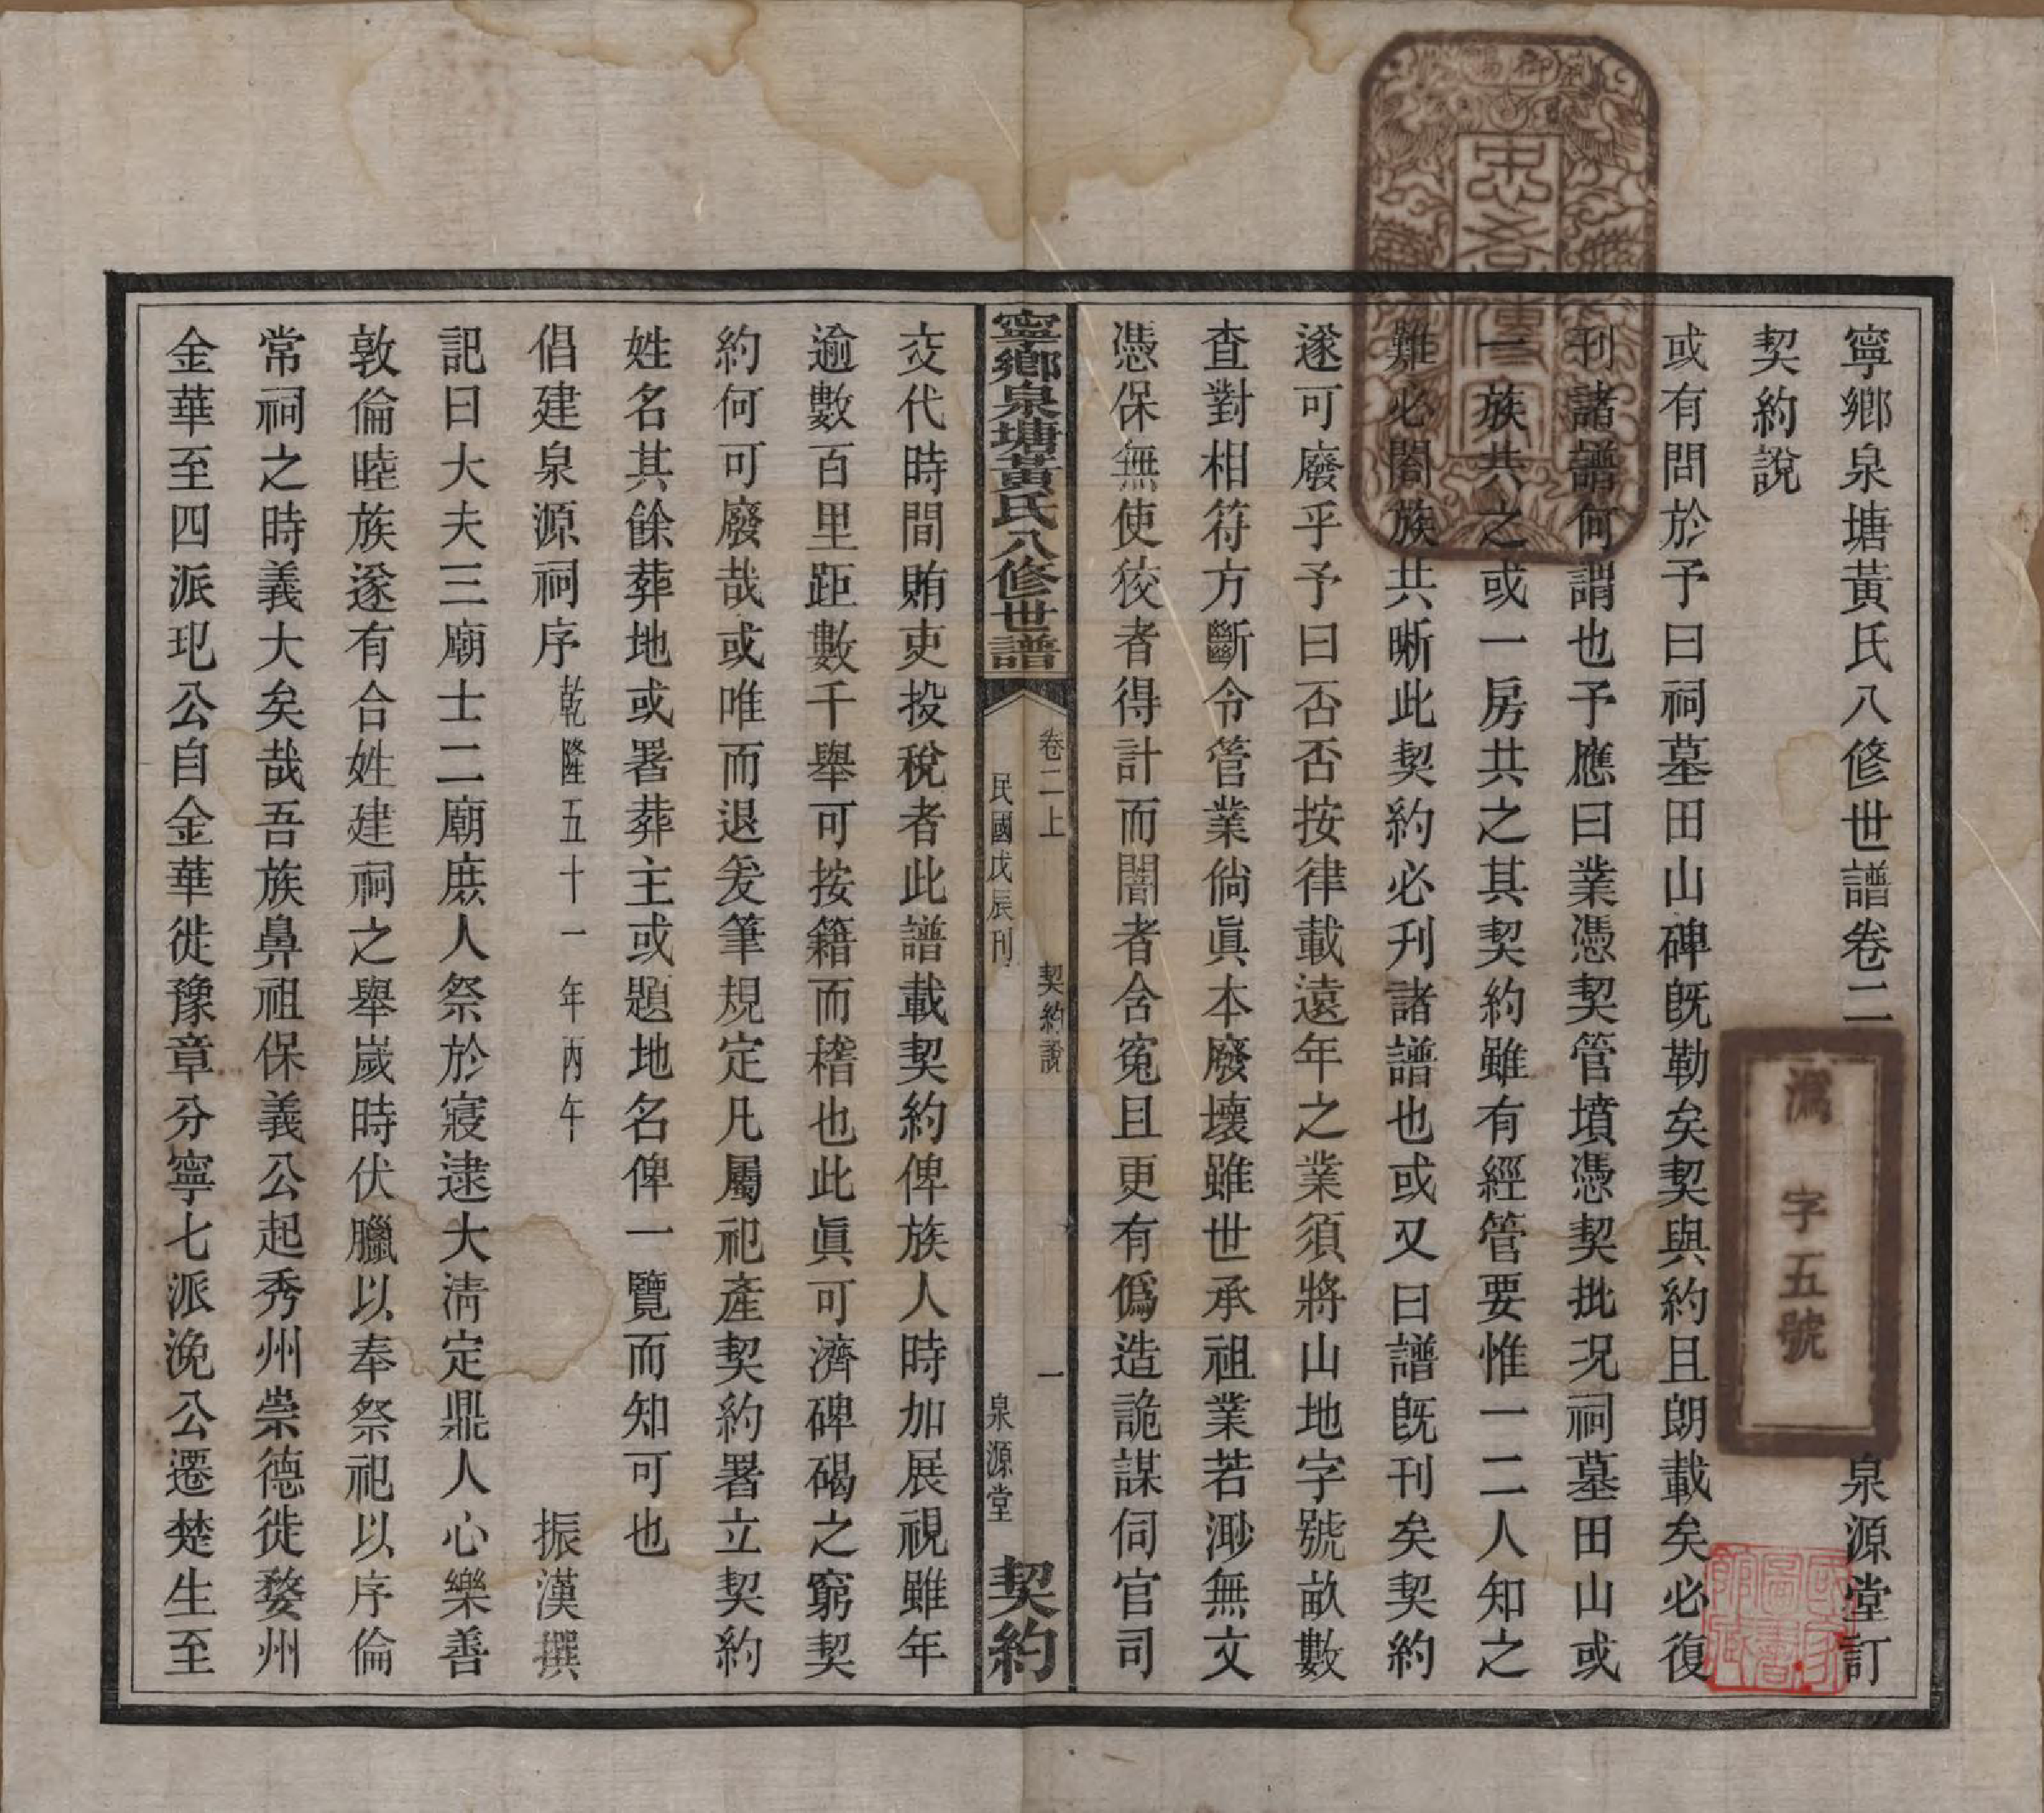 寧鄉泉塘黃氏八修世譜卷二
泉源堂訂
契約說
或有問於予曰祠墓田山碑既勒矣契與約且朗載矣必復
刊諸譜何謂也予應曰業憑契管墳憑契批况祠墓田山或
一族共之或一房共之其契約雖有經管要惟一二人知之
難必闔族共晰此契約必刋諸譜也或又曰譜既刊矣契約
遂可廢乎予曰否否按律載遠年之業須將山地字號畝數
查對相符方斷令管業倘眞本廢壞雖世承祖業若渺無文
憑保無使狡者得計而闇者含寃且更有僞造詭謀伺官司
寧鄉泉塘黃氏八修世譜
卷二上
契約說
一
民國戊辰刊
泉源堂
契約
交代時間賄吏投稅者此譜載契約俾族人時加展視雖年
逾數百里距數千舉可按籍而稽也此眞可濟碑碣之窮契
約何可廢哉或唯而退爰筆規定凡屬祀產契約署立契約
姓名其餘葬地或署葬主或題地名俾一覽而知可也
倡建泉源祠序 乾隆五十一年丙午
振漢撰
記曰大夫三廟士二廟庶人祭於寢逮大淸定鼎人心樂善
敦倫睦族遂有合姓建祠之舉歲時伏臘以奉祭祀以序倫
常祠之時義大矣哉吾族鼻祖保義公起秀州崇德徙婺州
金華至四派玘公自金華徙豫章分寧七派浼公遷楚生至
忠孝傳家
字五號